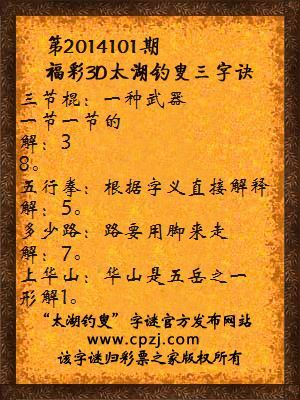 第2014101期
福彩3D太湖钓叟三字诀
三节棍：一种武器
一节一节的
解：3
8。
五行拳：根据字义直接解释
解：5。
多少路：路要用脚来走
解：7。
上华山：华山是五岳之一
形解1。
“太湖钓叟”字谜官方发布网站
www.cpzj.com
该字谜归彩票之家版权所有